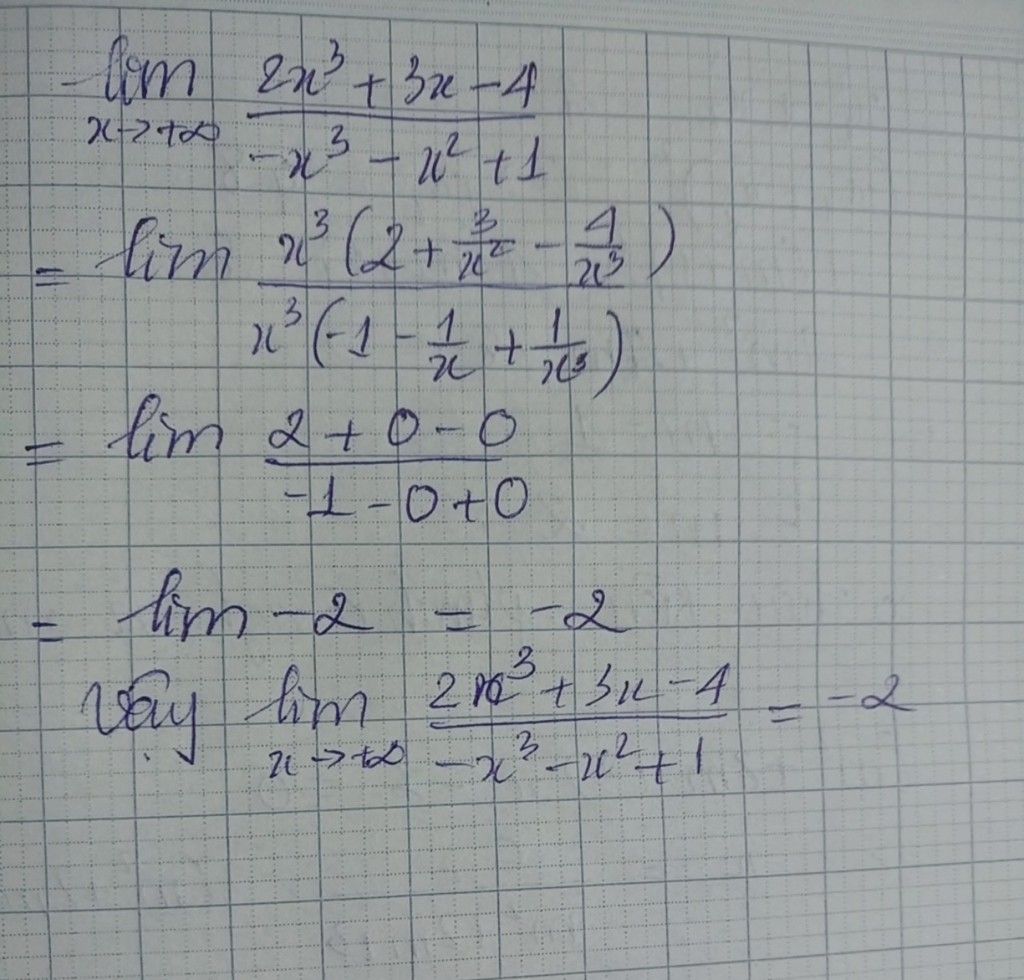 lim 2x³ + 3x - 4
x→+∞ -x³ - x² + 1
= lim x³(2 + 3/x² - 4/x³)
x³(-1 - 1/x + 1/x³)
= lim 2 + 0 - 0
-1 - 0 + 0
= lim -2 = -2
Vậy lim 2x³ + 3x - 4 = -2
x→+∞ -x³ - x² + 1